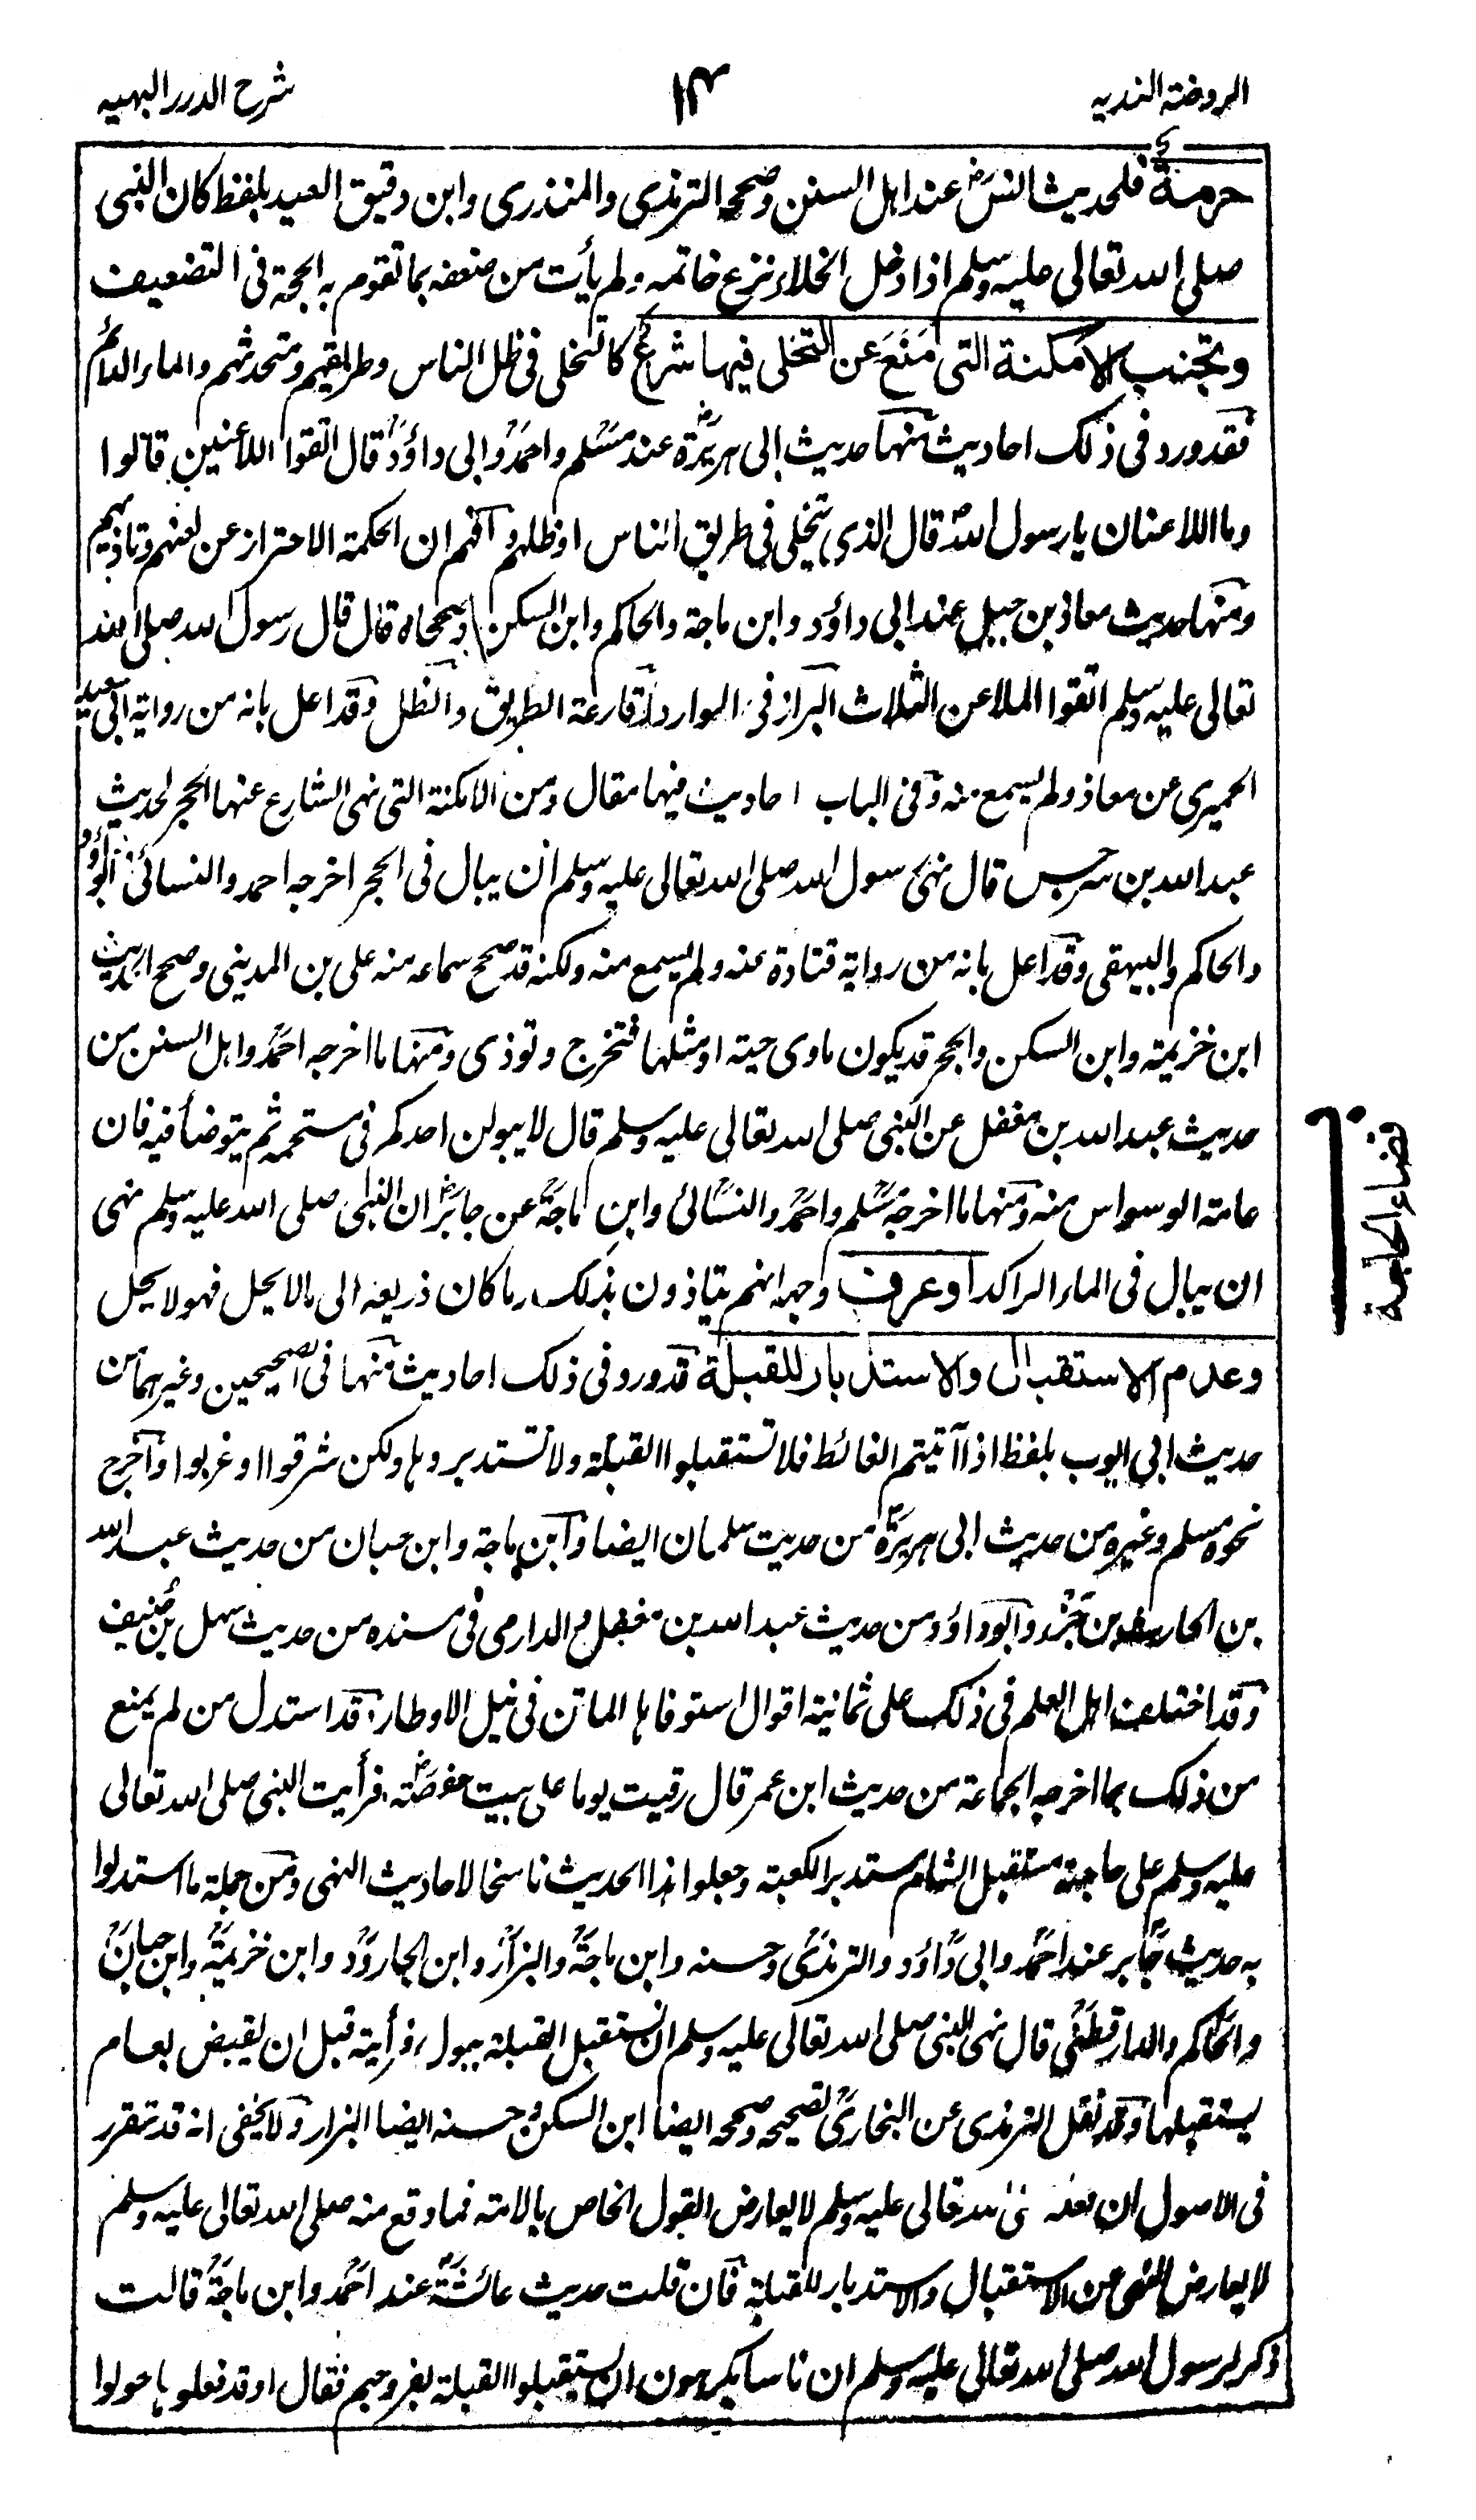 الروضة الندیه ۱۴ شرح الدرر البهیه
حرمة فلحدیث انس عند اهل السنن وصححه الترمذی والمنذری وابن دقیق العید بلفظ کان النبی
صلی الله تعالی علیه وسلم اذا دخل الخلاء نزع خاتمه ولم یأت من ضعفه بما تقوم به الحجة فی التضعیف
وتجنب الامکنة التی مَنَعَ عن التخلی فیها شرع کالتخلی فی ظل الناس وطریقهم ومتحدثهم والماء الدائم
فقد ورد فی ذلک احادیث منها حدیث ابی هریرة عند مسلم واحمد وابی داؤد قال اتقوا اللاعنین قالوا
وما اللاعنان یا رسول الله قال الذی یتخلی فی طریق الناس او ظلهم وافهم ان الحکمة الاحتراز عن لعنهم وتاذیهم
ومنها حدیث معاذ بن جبل عند ابی داؤد وابن ماجة والحاکم وابن السکن وصححاه قال قال رسول الله صلی الله
تعالی علیه وسلم اتقوا الملاعن الثلاث البراز فی الموارد وقارعة الطریق والظل وقد اعل بانه من روایة ابی سعید
الحمیری عن معاذ ولم یسمع منه وفی الباب احادیث فیها مقال ومن الامکنة التی نهی الشارع عنها الجحر لحدیث
عبد الله بن سرجس قال نهی رسول الله صلی الله تعالی علیه وسلم ان یبال فی الجحر اخرجه احمد والنسائی وابو داؤد
والحاکم والبیهقی وقد اعل بانه من روایة قتادة عنه ولم یسمع منه ولکنه قد صحح سماعه منه علی بن المدینی وصحح الحدیث
ابن خزیمة وابن السکن والجحر قد یکون ماوی حیته او مثلها فتخرج وتوذی ومنها ما اخرجه احمد واهل السنن من
حدیث عبد الله بن مغفل عن النبی صلی الله تعالی علیه وسلم قال لا یبولن احدکم فی مستحمه ثم یتوضأ فیه فان
عامة الوسواس منه ومنها ما اخرجه مسلم واحمد والنسائی وابن ماجة عن جابر ان النبی صلی الله علیه وسلم نهی
ان یبال فی الماء الراکد او عرف وجهه انهم یتاذون بذلک وما کان ذریعه الی مالا یحل فهو لا یحل
قضاء الحاجة
وعدم الاستقبال والاستدبار للقبلة قد ورد فی ذلک احادیث منها فی الصحیحین وغیرهما من
حدیث ابی ایوب بلفظ اذا آتیتم الغائط فلا تستقبلوا القبلة ولا تستدبروها ولکن شرقوا او غربوا واخرج
نحوه مسلم وغیره من حدیث ابی هریرة من حدیث سلمان ایضا وابن ماجة وابن حبان من حدیث عبد الله
بن الحارث بن جزء وابو داؤد من حدیث عبد الله بن مغفل والدارمی فی مسنده من حدیث سهل بن حنیف
وقد اختلف اهل العلم فی ذلک علی ثمانیة اقوال استوفاها الماتن فی نیل الاوطار وقد استدل من لم یمنع
من ذلک بما اخرجه الجماعة من حدیث ابن عمر قال رقیت یوما علی بیت حفصة فرأیت النبی صلی الله تعالی
علیه وسلم علی حاجته مستقبل الشام مستدبر الکعبة وجعلوا هذا الحدیث ناسخا لاحادیث النهی ومن جملة ما استدلوا
به حدیث جابر عند احمد وابی داؤد والترمذی وحسنه وابن ماجة والبزار وابن الجارود وابن خزیمة وابن حبان
والحاکم والدارقطنی قال نهی النبی صلی الله تعالی علیه وسلم ان نستقبل القبلة ببول فرأیته قبل ان یقبض بعام
یستقبلها وقد نقل الترمذی عن البخاری تصحیحه وصححه ایضا ابن السکن وحسنه ایضا البزار ولا یخفی انه قد تقرر
فی الاصول ان فعله صلی الله تعالی علیه وسلم لا یعارض القول الخاص بالامة فما وقع منه صلی الله تعالی علیه وسلم
لا یعارض النهی عن الاستقبال والاستدبار للقبلة فان قلت حدیث عائشة عند احمد وابن ماجة قالت
ذکر لرسول الله صلی الله تعالی علیه وسلم ان ناسا یکرهون ان یستقبلوا القبلة بفروجهم فقال او قد فعلوها حولوا